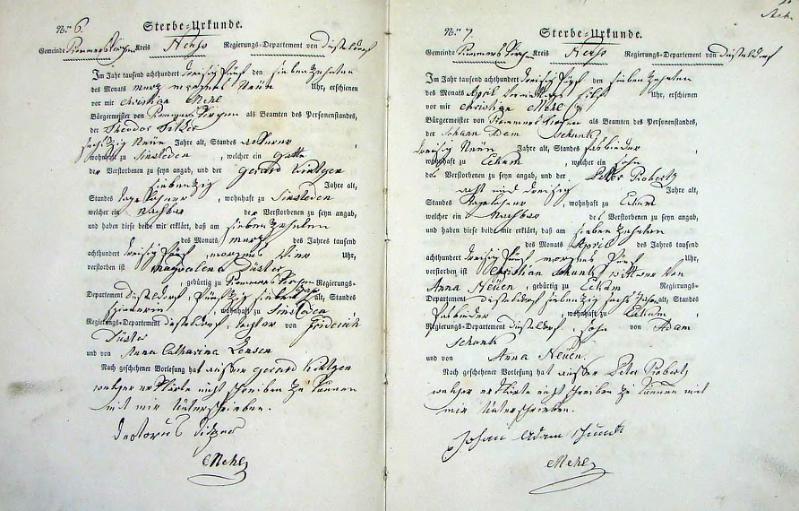 Nro 6.
Sterbe-Urkunde.
Gemeinde Rommerskirchen Kreis Neuss Regierungs-Departement von Düsseldorf
Im Jahr tausend achthundert dreißig fünf den siebenzehnten
des Monats merz morgens Neun Uhr, erschienen
vor mir christian Mehl
Bürgermeister von Rommerskirchen als Beamten des Personenstandes,
der Theodor
sechszig Neun Jahre alt, Standes
wohnhaft zu Sinsteden, welcher ein gatte
der Verstorbenen zu seyn angab, und der gerard
siebenzig Jahre alt,
Standes Tagelöhner, wohnhaft zu Sinsteden
welcher ein Nachbar der Verstorbenen zu seyn angab,
und haben diese beide mir erklärt, daß am siebenzehnten
des Monats merz des Jahres tausend
achthundert dreißig fünf, morgens vier Uhr,
verstorben ist Magdalena Düster
, gebürtig zu Rommerskirchen Regierungs-
Departement Düsseldorf, fünfzig sieben Jahr alt, Standes
, wohnhaft zu Sinsteden
Regierungs-Departement Düsseldorf, Tochter von Friderich
Düster
und von Anna Catharina Lensen
Nach geschehener Vorlesung hat außer gerard
welcher erklärte nicht schreiben zu können
mit mir Unterschrieben.
Mehl
Nro 7.
Sterbe-Urkunde.
Gemeinde Rommerskirchen Kreis Neuss Regierungs-Departement von Düsseldorf
Im Jahr tausend achthundert dreißig fünf den siebenzehnten
des Monats April Uhr, erschienen
vor mir christian Mehl
Bürgermeister von Rommerskirchen als Beamten des Personenstandes,
der Johann Adam Schunk
dreißig Neun Jahre alt, Standes faßbinder
wohnhaft zu Eckum, welcher ein sohn
des Verstorbenen zu seyn angab, und der Peter Robertz
acht und dreißig Jahre alt,
Standes Tagelöhner, wohnhaft zu Eckum
welcher ein Nachbar des Verstorbenen zu seyn angab,
und haben diese beide mir erklärt, daß am siebenzehnten
des Monats April des Jahres tausend
achthundert dreißig fünf morgens fünf Uhr,
verstorben ist Christian Schunk wittwer von
Anna Neuen, gebürtig zu Eckum Regierungs-
Departement Düsseldorf siebenzig sechs Jahr alt, Standes
Faßbinder, wohnhaft zu Eckum,
Regierungs-Departement Düsseldorf, sohn von Adam
Schunk
und von Anna Neuen.
Nach geschehener Vorlesung hat außer Peter Robertz
welcher erklärte nicht schreiben zu können mit
mir Unterschrieben.
Johan Adam Schunk
Mehl